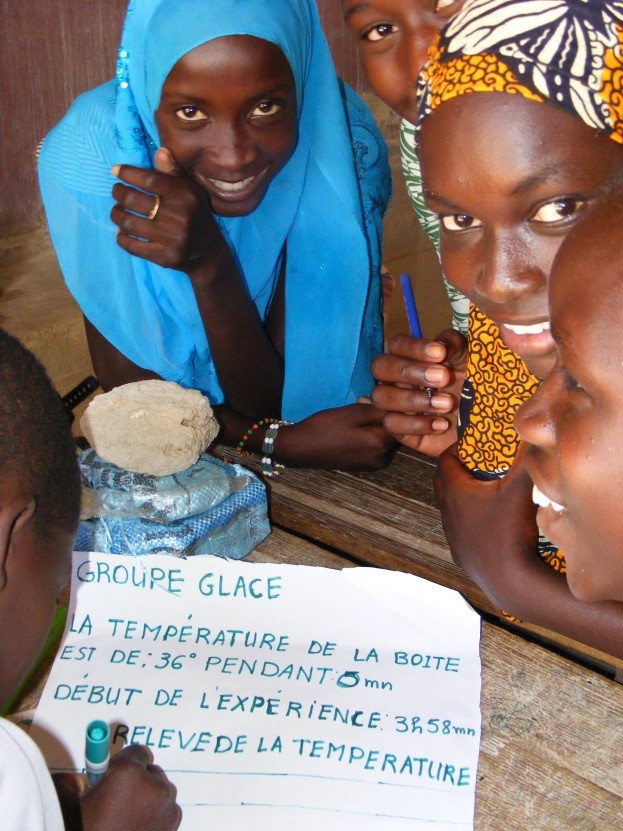 GROUPE GLACE
LA TEMPÉRATURE DE LA BOITE
EST DE: 36° PENDANT: 5mn
DÉBUT DE L'EXPÉRIENCE: 3h58mn
RELEVE DE LA TEMPERATURE